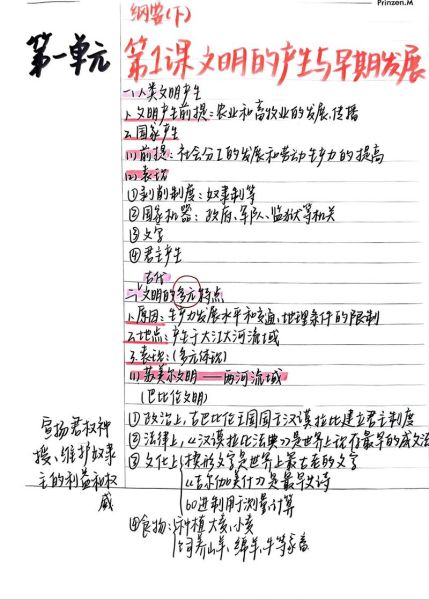 Prinzen.M
纲要(下)
第一单元
第1课文明的产生与早期发展
一、人类文明产生
1.文明产生前提:农业和畜牧业的发展、传播
2.国家产生
(1)前提:社会分工的发展和劳动生产力的提高
(2)表现
①剥削制度:奴隶制等
②国家机器:政府、军队、监狱等机关
③文字
④君主产生
古代
二、文明的多元特点
1.原因:生产力发展水平和交通、地理条件的限制
2.地点:产生于大江大河流域
3.表现:(多元体现)
(1)苏美尔文明——两河流域
(巴比伦文明)
①政治上,古巴比伦王国国王汉谟拉比建立君主制度
②法律上,《汉谟拉比法典》是世界上现存最早的成文法
③文化上{楔形文字是世界上最古老的文字
《吉尔伽美什》是最早史诗
60进制用于测量、计算
④食物:种植大麦、小麦
饲养山羊、绵羊、牛等家畜
宣扬君权神
授、维护奴隶
主的利益和权
威